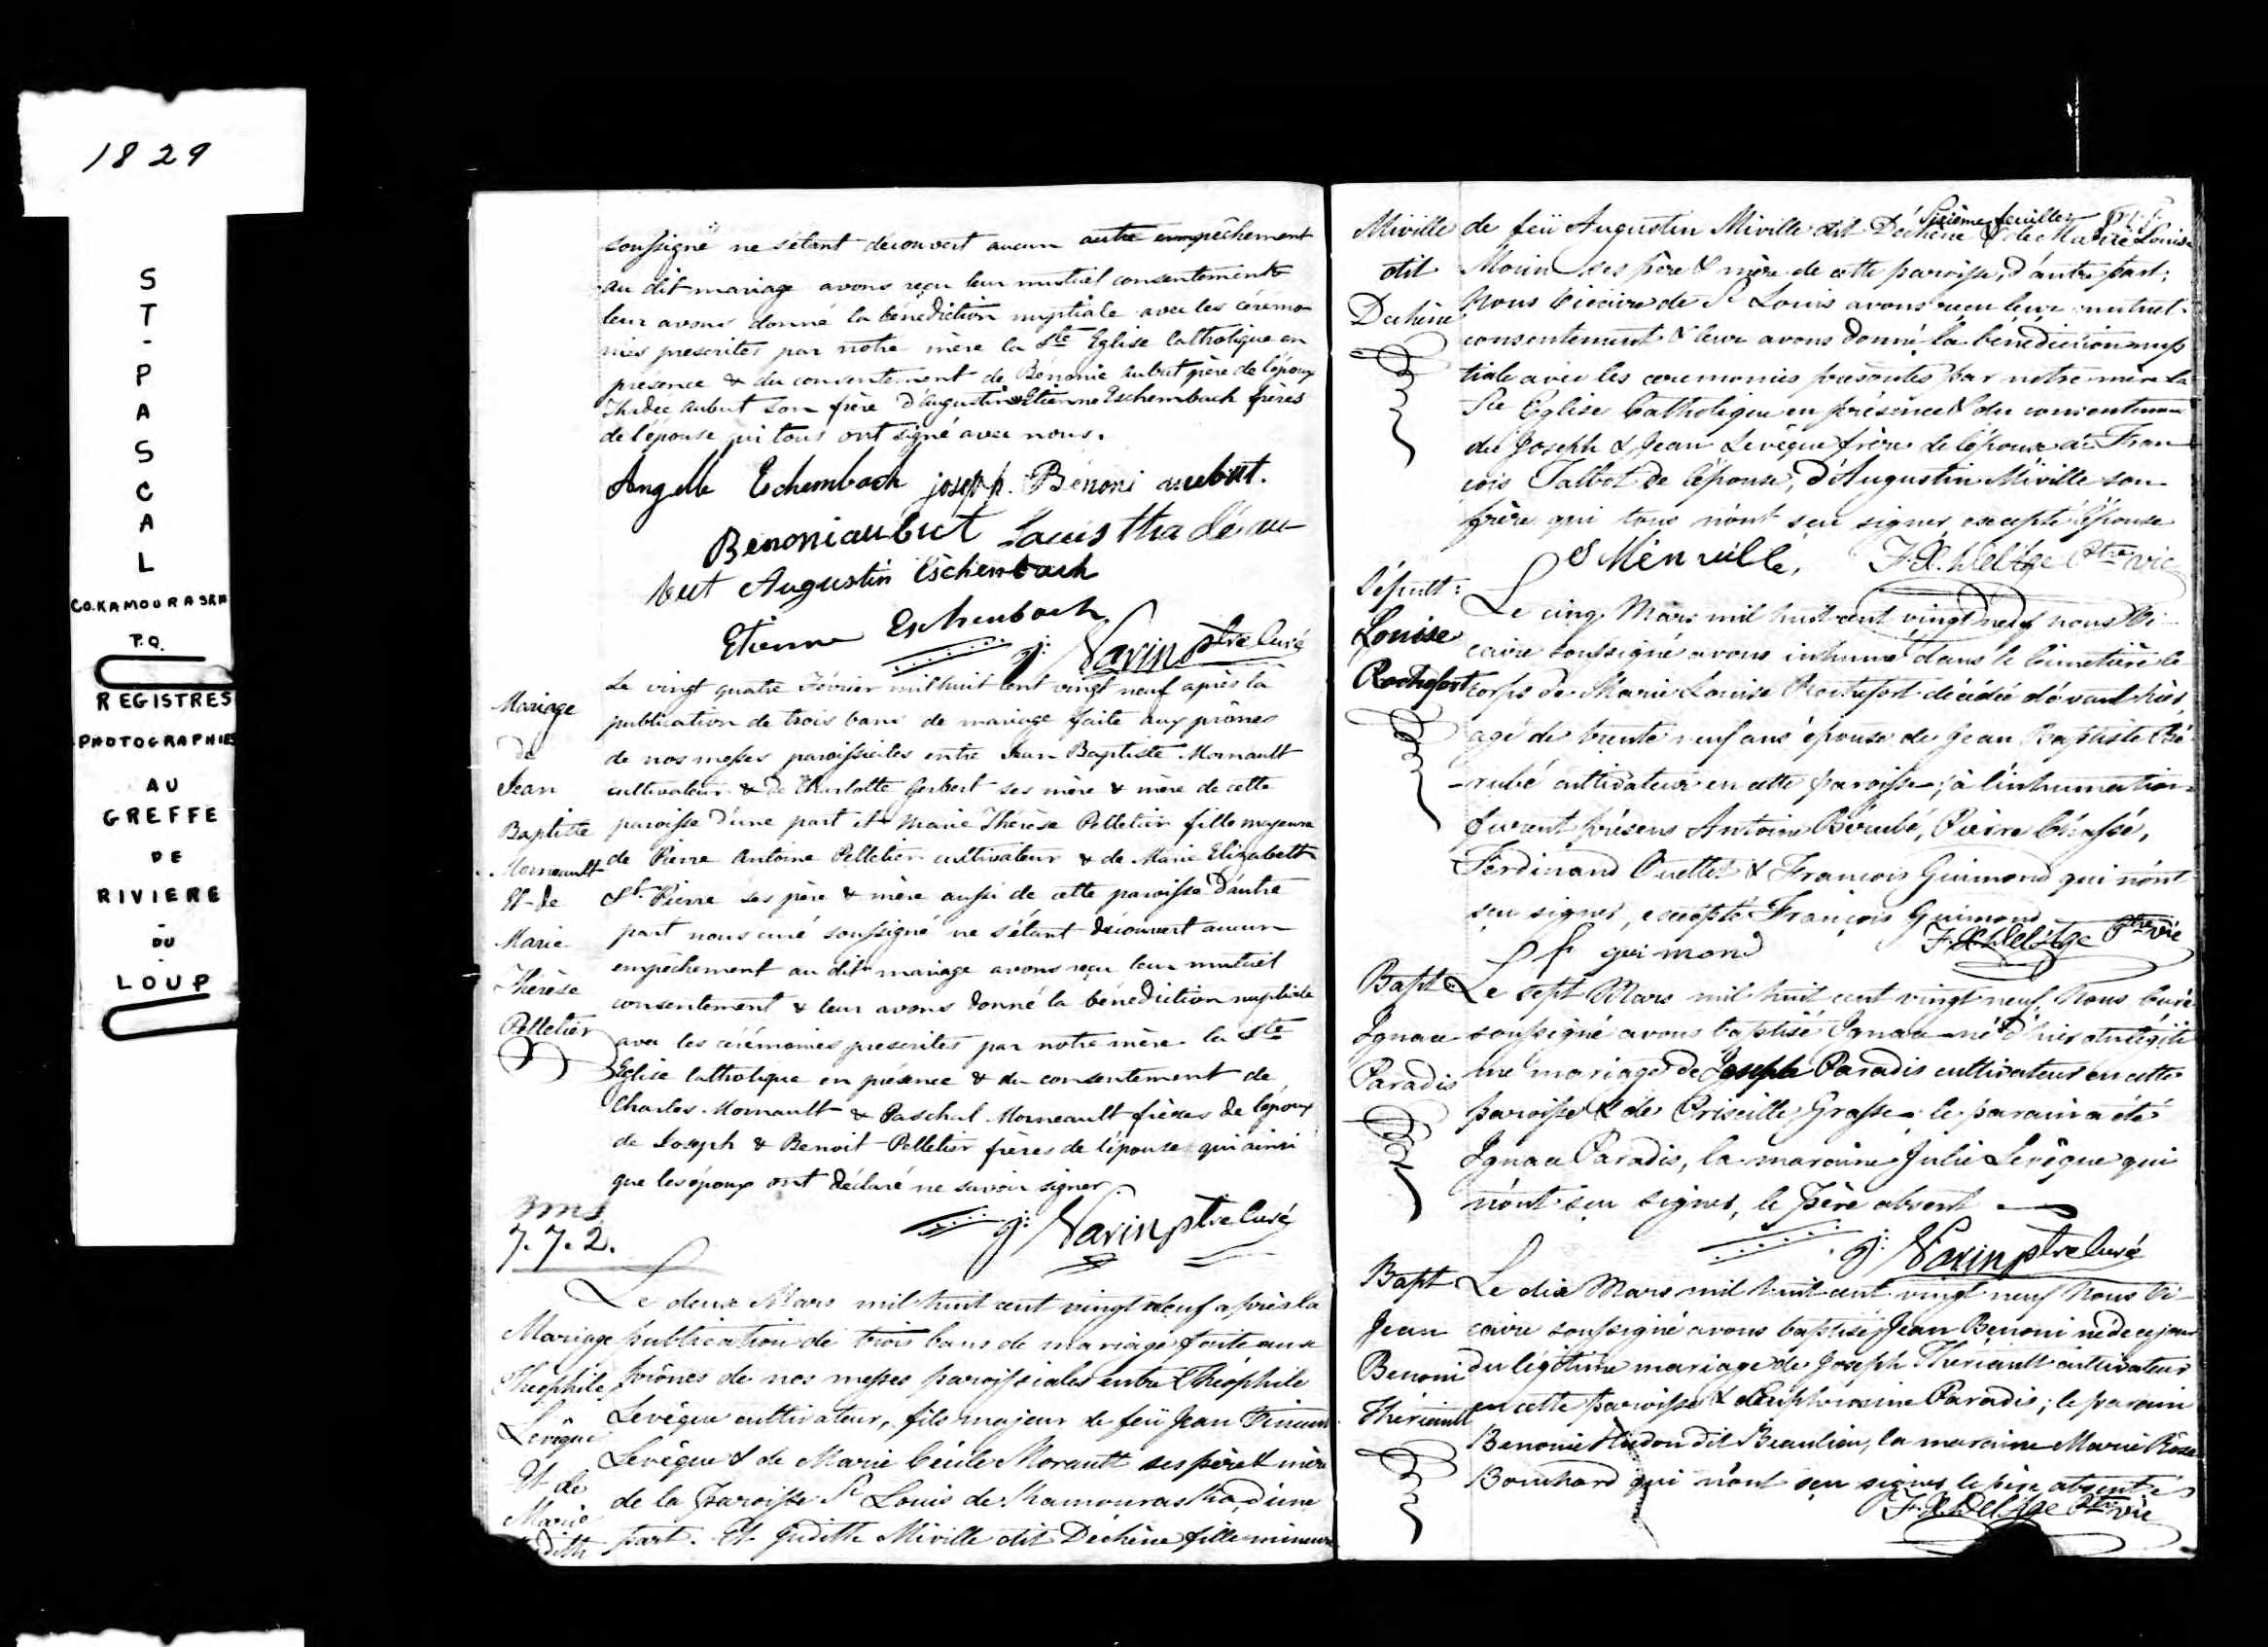 1829
S
T
-
P
A
S
C
A
L
CO. KAMOURASKA
P.Q.
REGISTRES
PHOTOGRAPHIES
AU
GREFFE
DE
RIVIERE
-
DU
-
LOUP
soussigné ne s'étant découvert aucun autre empêchement
au dit mariage avons reçu leur mutuel consentement &
leur avons donné la bénédiction nuptiale avec les cérémo
nies prescrites par notre mère la Ste Eglise Catholique en
présence & du consentement de Bénonie Aubut père de l'époux
Thadée Aubut son frère d'Augustin & Etienne Eschembach frères
de l'épouse qui tous ont signé avec nous.
Angelle Eschembach joseph. Bénoni aubut.
Benoni aubut Louis thadé au
but Augustin Eschenbach
Etienne Eschenbach
J: Varin ptre Curé
Mariage
de
Jean
Baptiste
Morneault
Et de
Marie
Thérèse
Pelletier
Le vingt quatre Février mil huit cent vingt neuf après la
publication de trois bans de mariage faite aux prônes
de nos messes paroissiales entre Jean Baptiste Mornault
cultivateur & de Charlotte Gerbert ses mère & mère de cette
paroisse d'une part et Marie Thérèse Pelletier fille majeure
de Pierre Antoine Pelletier cultivateur & de Marie Elizabeth
St. Pierre ses père & mère aussi de cette paroisse d'autre
part nous curé soussigné ne s'étant découvert aucun
empêchement au dit mariage avons reçu leur mutuel
consentement & leur avons donné la bénédiction nuptiale
avec les cérémonies prescrites par notre mère la Ste
Eglise Catholique en présence & du consentement de
Charles Mornault & Paschal Morneault frères de l'époux
de Joseph & Benoit Pelletier frères de l'épouse qui ainsi
que les époux ont déclaré ne savoir signer
J: Varin ptre Curé
7. 7. 2.
Mariage
Théophile
Levêque
Et de
Marie
Judith
Le deux Mars mil huit cent vingt neuf après la
publication de trois bans de mariage faite aux
prônes de nos messes paroissiales entre Théophile
Levêque cultivateur, fils majeur de feü Jean Vincent
Levêque & de Marie Cécile Morault ses père & mère
de la Paroisse St Louis de Kamouraska, d'une
part. Et Judith Miville dit Dechène fille mineure
Sixième feuillet
Miville
dit
Dechène
de feü Augustin Miville dit Déchène & de Marie Louise
Morin ses père & mère de cette paroisse, d'autre part;
Nous Vicaire de St Louis avons reçu leur mutuel
consentement & leur avons donné la bénédiction nup
tiale avec les ceremonies prescrites par notre mère la
Ste Eglise Catholique en présence & du consentement
du Joseph & Jean Levêque frère de l'époux de Fran
çois Talbot de l'épouse, d'Augustin Miville son
frère qui tous n'ont seu signer excepté l'épouse
F.X. Delâge Ptre vic
Sépult:
Louise
Rochefort
Le cinq Mars mil huit cent vingt neuf nous Vi
caire soussigné avons inhumé dans le Cimetière le
corps de Marie Louise Rochefort décédée d'avant hier,
agé de trente neuf ans épouse de Jean Baptiste Bé-
-rubé cultivateur en cette paroisse; à l'inhumation
furent présens Antoine Bérubé, Pierre Chassé,
Ferdinand Ouellet & François Guimond qui n'ont
seu signer, excepté François Guimond
f guimond F.X. Delâge Ptre vic
Bapt
Ignace
Paradis
Le sept Mars mil huit cent vingt neuf Nous Curé
soussigné avons baptisé Ignace né d'hier du légiti
me mariage de Joseph Paradis cultivateur en cette
paroisse & de Priscille Grasse. le parain a été
Ignace Paradis, la maraine Julie Levêque qui
n'ont seu signer, le père absent.
J: Varin ptre Curé
Bapt
Jean
Benoni
Thériault
Le dix Mars mil huit cent vingt neuf Nous Vi-
caire soussigné avons baptisé Jean Benoni né de ce jour
du légitime mariage de Joseph Thériault cultivateur
en cette paroisse & d'Euphrosine Paradis; le parain
Benonie Hudon dit Beaulieu, la maraine Marie Rose
Bouchard qui n'ont seu signer le père absent
F.X. Delâge Ptre vic